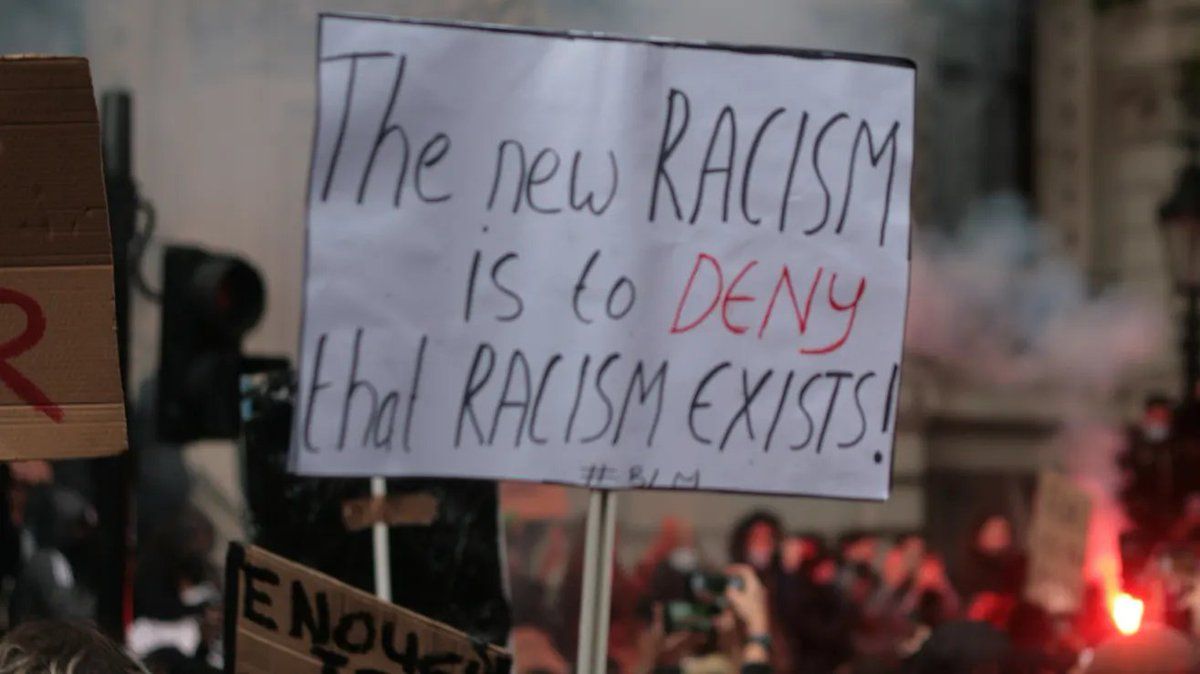 The new RACISM
is to DENY
that RACISM EXISTS!
#BLM
R
ENOUGH
IS